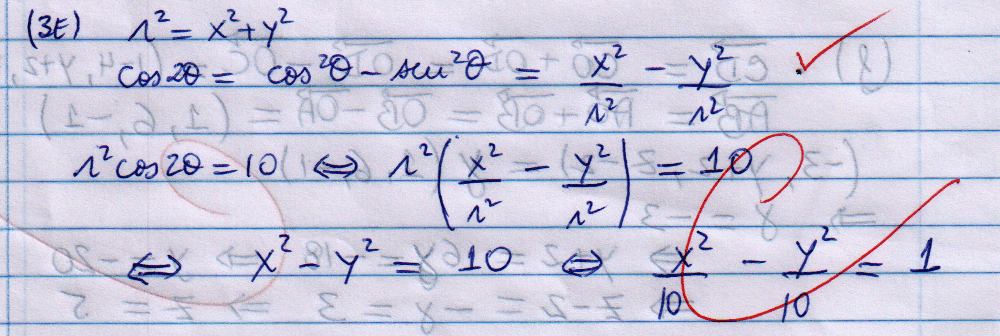 (3E) r² = x² + y²
cos2θ = cos²θ - sin²θ = x²/r² - y²/r²
r²cos2θ = 10 ⇔ r²(x²/r² - y²/r²) = 10
⇔ x² - y² = 10 ⇔ x²/10 - y²/10 = 1